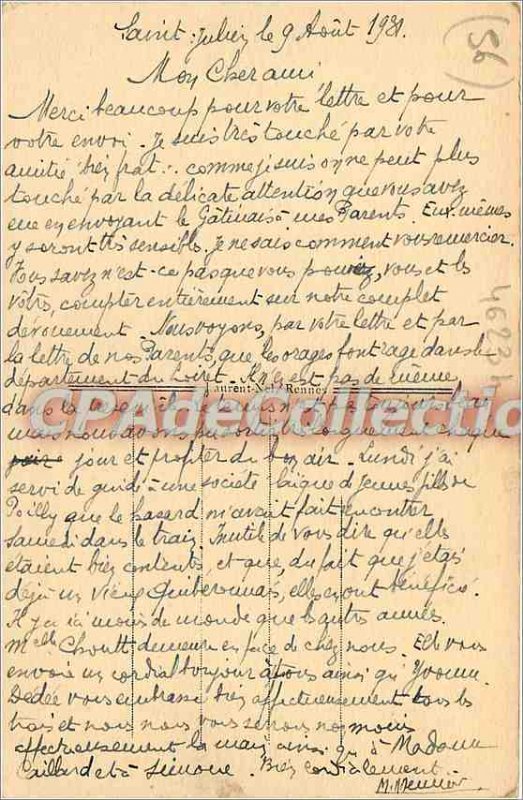 Saint-Julien, le 9 Août 1931.
(56)
Mon Cher ami
Merci beaucoup pour votre lettre et pour
votre envoi. Je suis très touché par votre
amitié bien
comme je suis on ne peut plus
touché par la délicate attention que vous avez
eue en envoyant le Gâtinais à mes Parents. Eux-mêmes
y seront très sensibles. Je ne sais comment vous remercier.
Vous savez n'est-ce pas que vous pouvez, vous et les
vôtres, compter entièrement sur notre complet
dévouement. Nous voyons, par votre lettre et par
la lettre de nos Parents, que les orages font rage dans le
département du Loiret. Il n'en est pas de même
Laurent-Nel, Rennes
dans la
CPADeCollection
mais nous avons pu sortir chaque
jour et profiter du bon air. Lundi j'ai
servi de guide à une société laïque de jeunes filles de
Poilly que le hasard m'avait fait rencontrer
samedi dans le train. Inutile de vous dire qu'elles
étaient bien contentes, et que, du fait que j'étais
déjà un vieux Quiberonnais, elles en ont bénéficié.
Il y a ici moins de monde que les autres années.
Melle demeure en face de chez nous. Elle vous
envoie un cordial bonjour à tous ainsi qu'Yvonne.
Dédée vous embrasse bien affectueusement tous les
trois et nous nous vous serrons non moins
affectueusement la main ainsi qu'à Madame
et à Simone. Bien cordialement